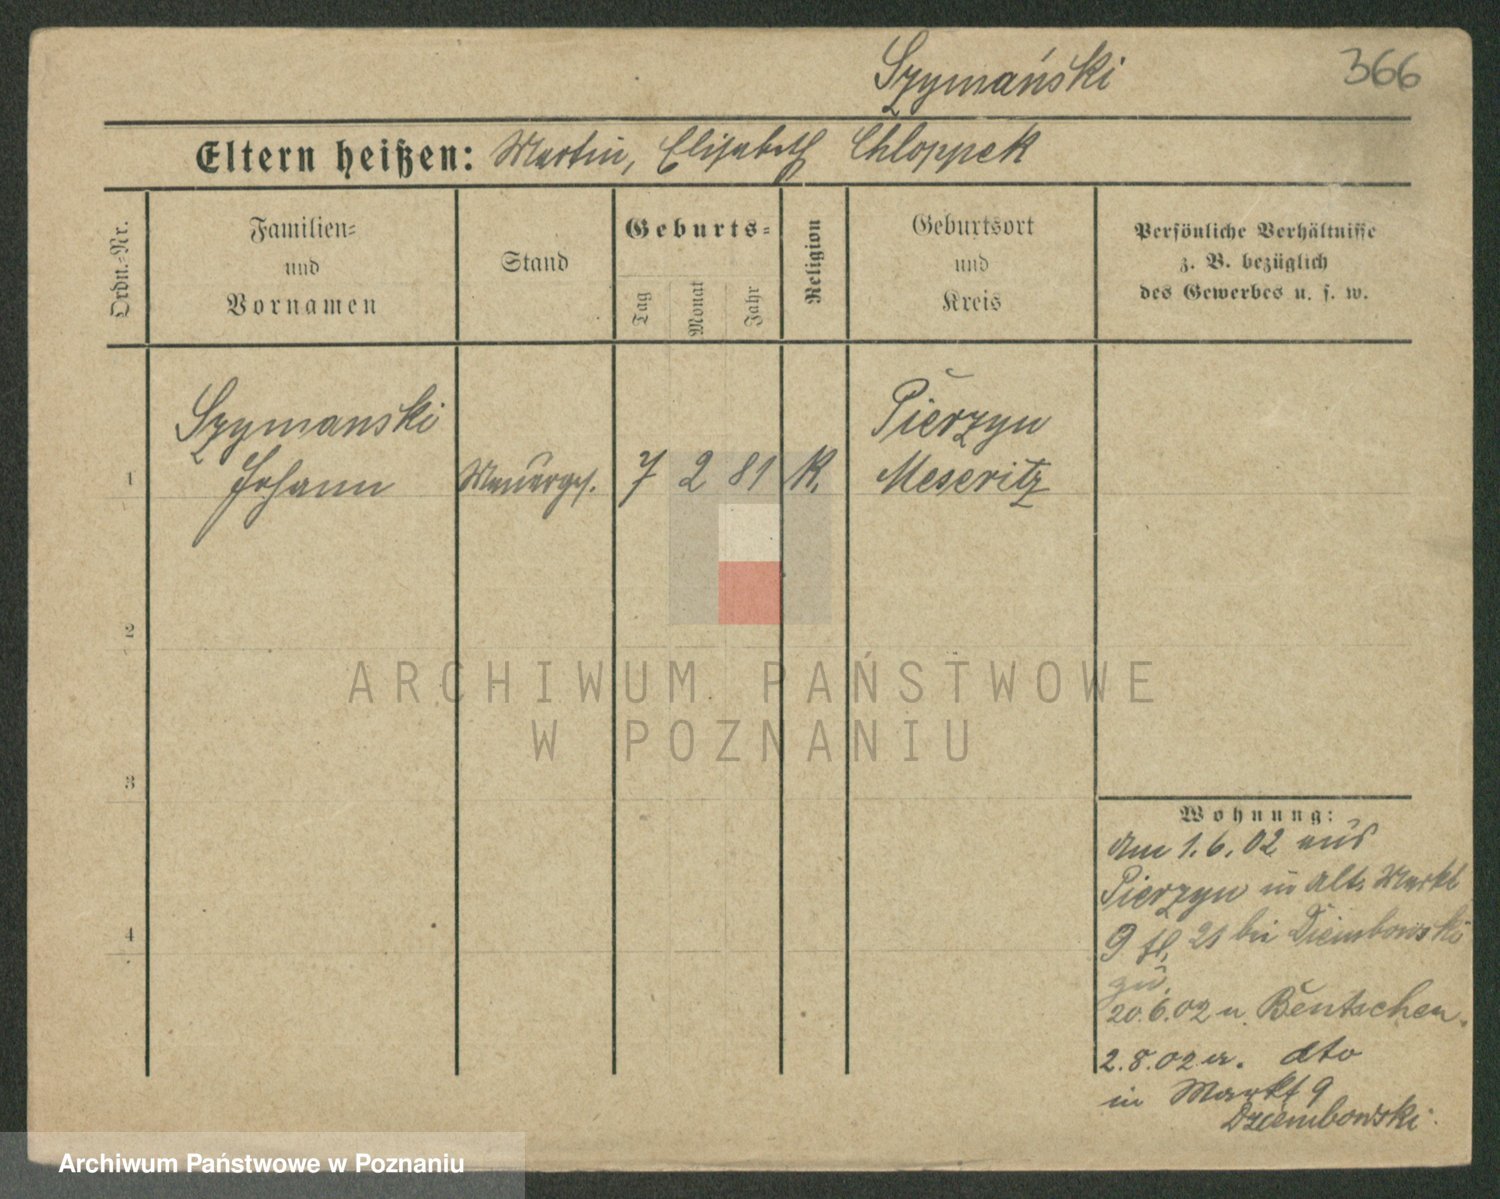 Szymański
366
Eltern heißen: Martin, Elisabeth Chloppek
Ordn.-Nr.
Familien-
und
Vornamen
Stand
Geburts-
Tag
Monat
Jahr
Religion
Geburtsort
und
Kreis
Persönliche Verhältnisse
z. B. bezüglich
des Gewerbes u. s. w.
1
Szymanski
Johann
Maurergs.
7 2 81
K.
Pierzyn
Meseritz
2
3
4
ARCHIWUM PAŃSTWOWE
W POZNANIU
Wohnung:
Am 1.6.02 aus
Pierzyn in Alt. Markt
9 II. 21 bei Dziembowski
zu.
20.6.02 n. Bentschen.
2.8.02 a. dto
in Markt 9
Dziembowski
Archiwum Państwowe w Poznaniu